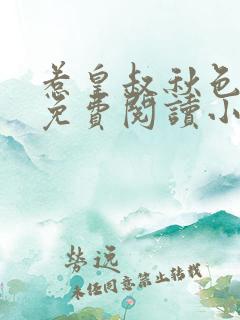 惹皇叔秋色
免費閱讀小
勞远
未经同意禁止转载